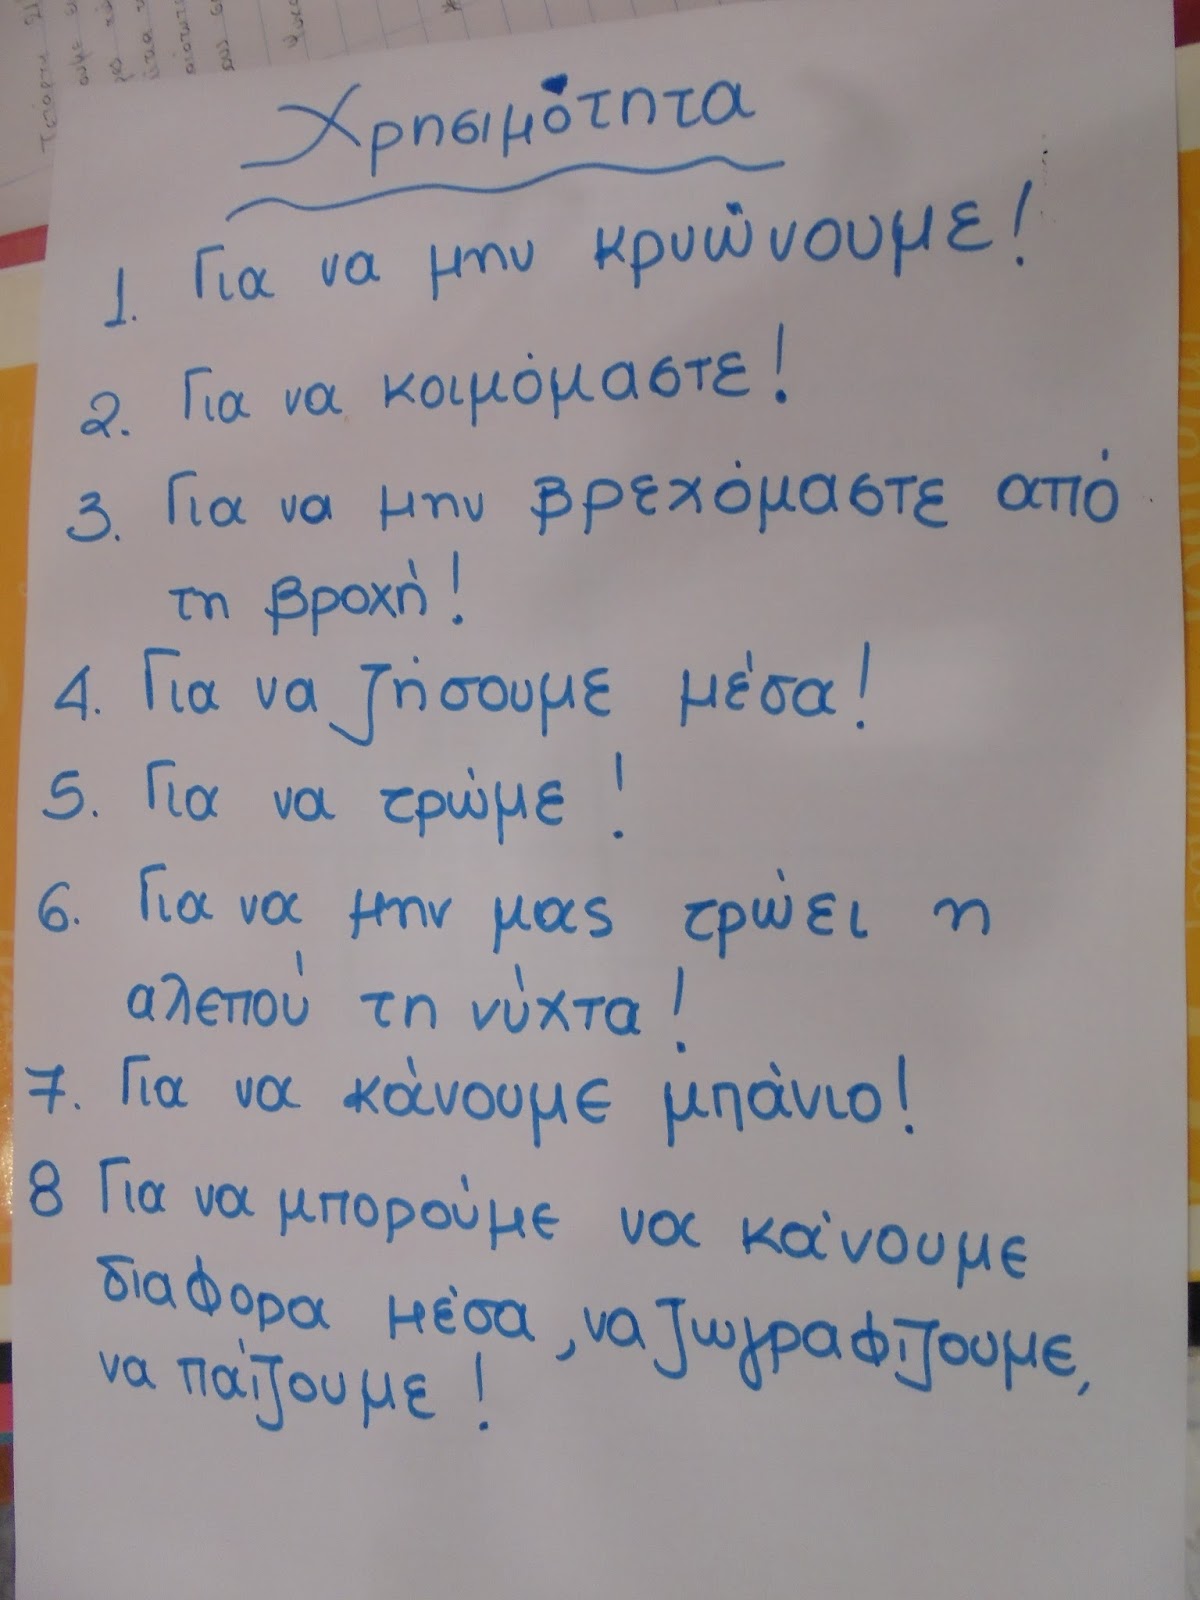 Χρησιμότητα
1. Για να μην κρυώνουμε!
2. Για να κοιμόμαστε!
3. Για να μην βρεχόμαστε από
τη βροχή!
4. Για να ζήσουμε μέσα!
5. Για να τρώμε!
6. Για να μην μας τρώει η
αλεπού τη νύχτα!
7. Για να κάνουμε μπάνιο!
8 Για να μπορούμε να κάνουμε
διαφορα μέσα, να ζωγραφίζουμε,
να παίζουμε!